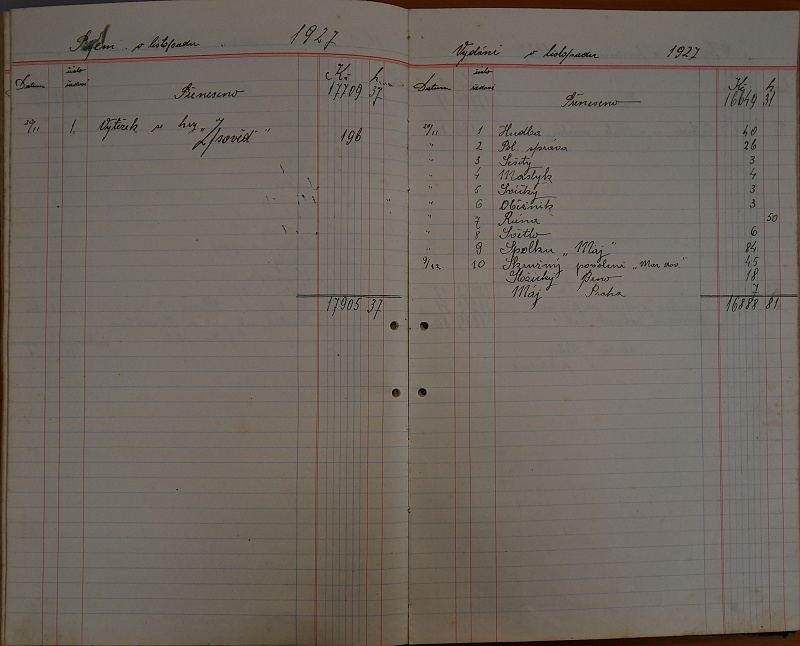 Příjem v listopadu 1927
Datum číslo řadové Kč h
Přeneseno 17709 37
20/11 1. Výtěžek ze hry „Zpověď" 196
17905 37
Vydání v listopadu 1927
Datum číslo řadové Kč h
Přeneseno 16649 31
20/11 1 Hudba 40
" 2 Pol. správa 26
" 3 Sešity 3
" 4 Mastyk 4
" 5 Svíčky 3
" 6 Oběžník 3
" 7 50
" 8 Světlo 6
" 9 Spolku „Máj" 84
9/12 10 povolení 45
Brno 18
Máj Praha 7
16888 81